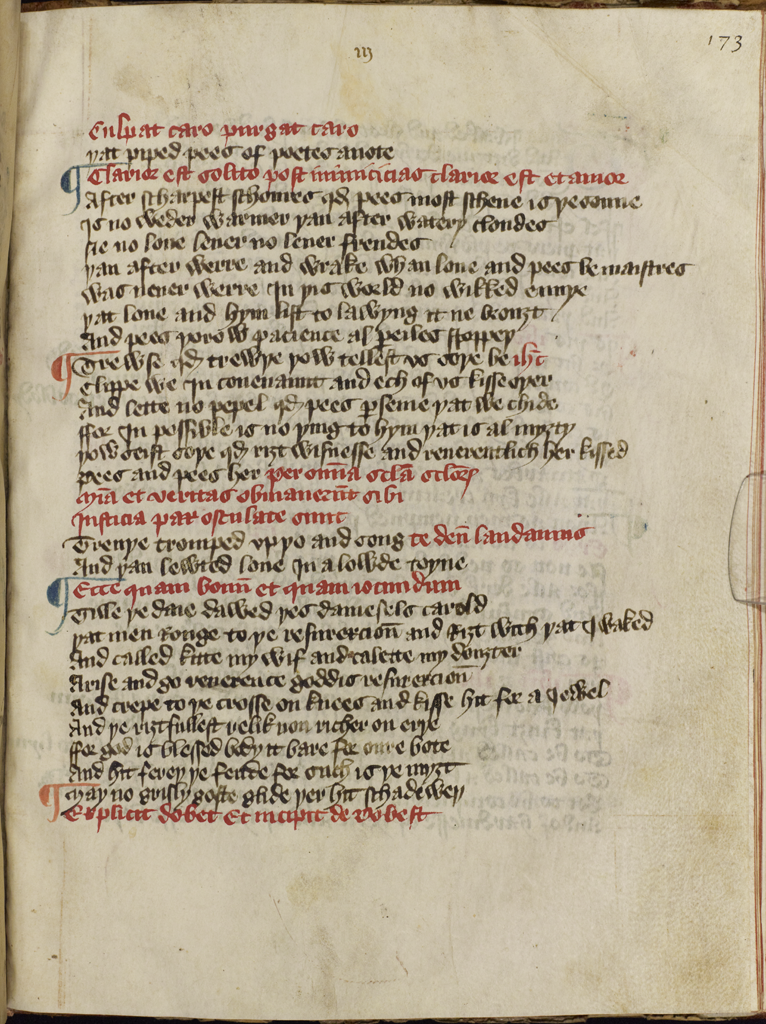 m
173
Culpat caro purgat caro
yat piped pees of poetes a note
Clarior est solito post inimicicias clarior est et amor
After scharpest schoures qd pees most schene is ye sonne
Is no weder warmer yan after watery cloudes
Ne no loue leuer no leuer frendes
yan after werre and wrake whan loue and pees be maistres
was neuer werre in yis world no wikked enuye
yat loue and hym list to lawyng it ne brouzt
And pees yorow pacience al periles stoppey
Trewse qd trewye yow tellest vs soye be ihc
Clippe we in couenaunt and ech of vs kisse oyer
And lette no pepel qd pees perseiue yat we chide
ffor In possible is no ying to hym yat is al myzty
yow seist soye qd rizt wisnesse and reuerentlich her kissed
Pees and pees her per omia scla sclorz
Mia et veritas obuiauerut sibi
Iusticia pax osculate sunt
Trewye tromped vp yo and song te deu laudamus
And yan lewted loue In a lowde toyne
Ecce quam bonu et quam iocundum
Tille ye daie dawed yes dameisels carold
yat men Ronge to ye resureccion and Rizt with yat I waked
And called kitte my wif and calette my douzter
Arise and go reuerence goddis resureccion
And crepe to ye crosse on knees and kisse hit for a Iewel
And ye riztfullest relik non richer on erye
ffor god is blessed body it bare for oure bote
And hit ferey ye fende for such is ye myzt
May no grisly goste glide yer hit schadewey
Explicit dobet Et incipit de dobest